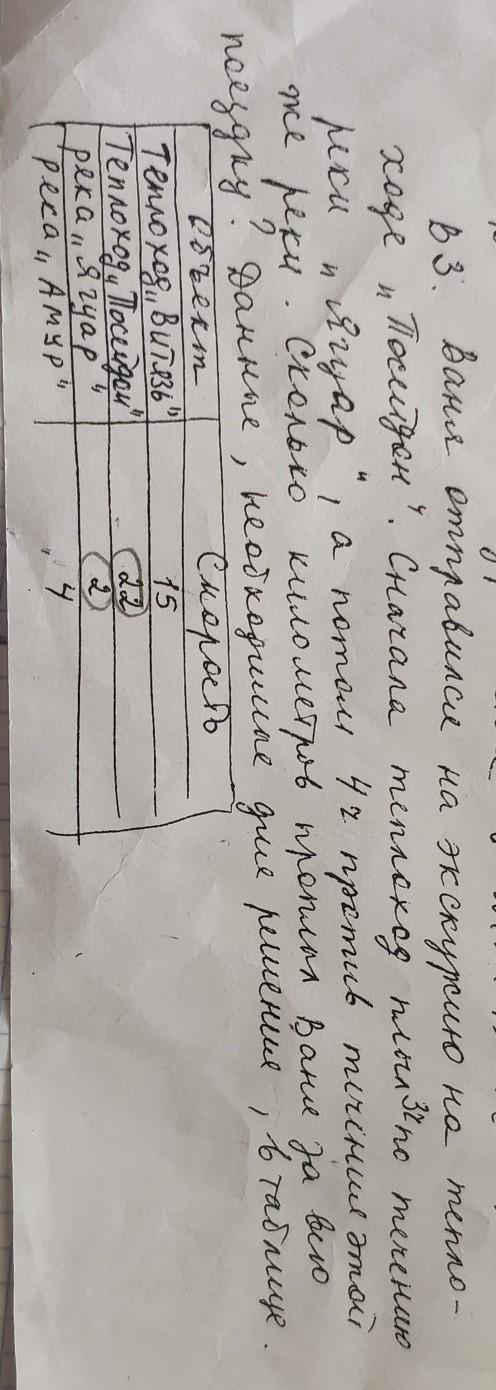 В3. Ваня отправился на экскурсию на тепло-
ходе "Посейдон". Сначала теплоход плыл 3ч по течению
реки "Ягуар", а потом 4ч против течения этой
же реки. Сколько километров проплыл Ваня за всю
поездку? Данные, необходимые для решения, в таблице.
Объект Скорость
Теплоход "Витязь" 15
Теплоход "Посейдон" 22
река "Ягуар" 2
река "Амур" 4